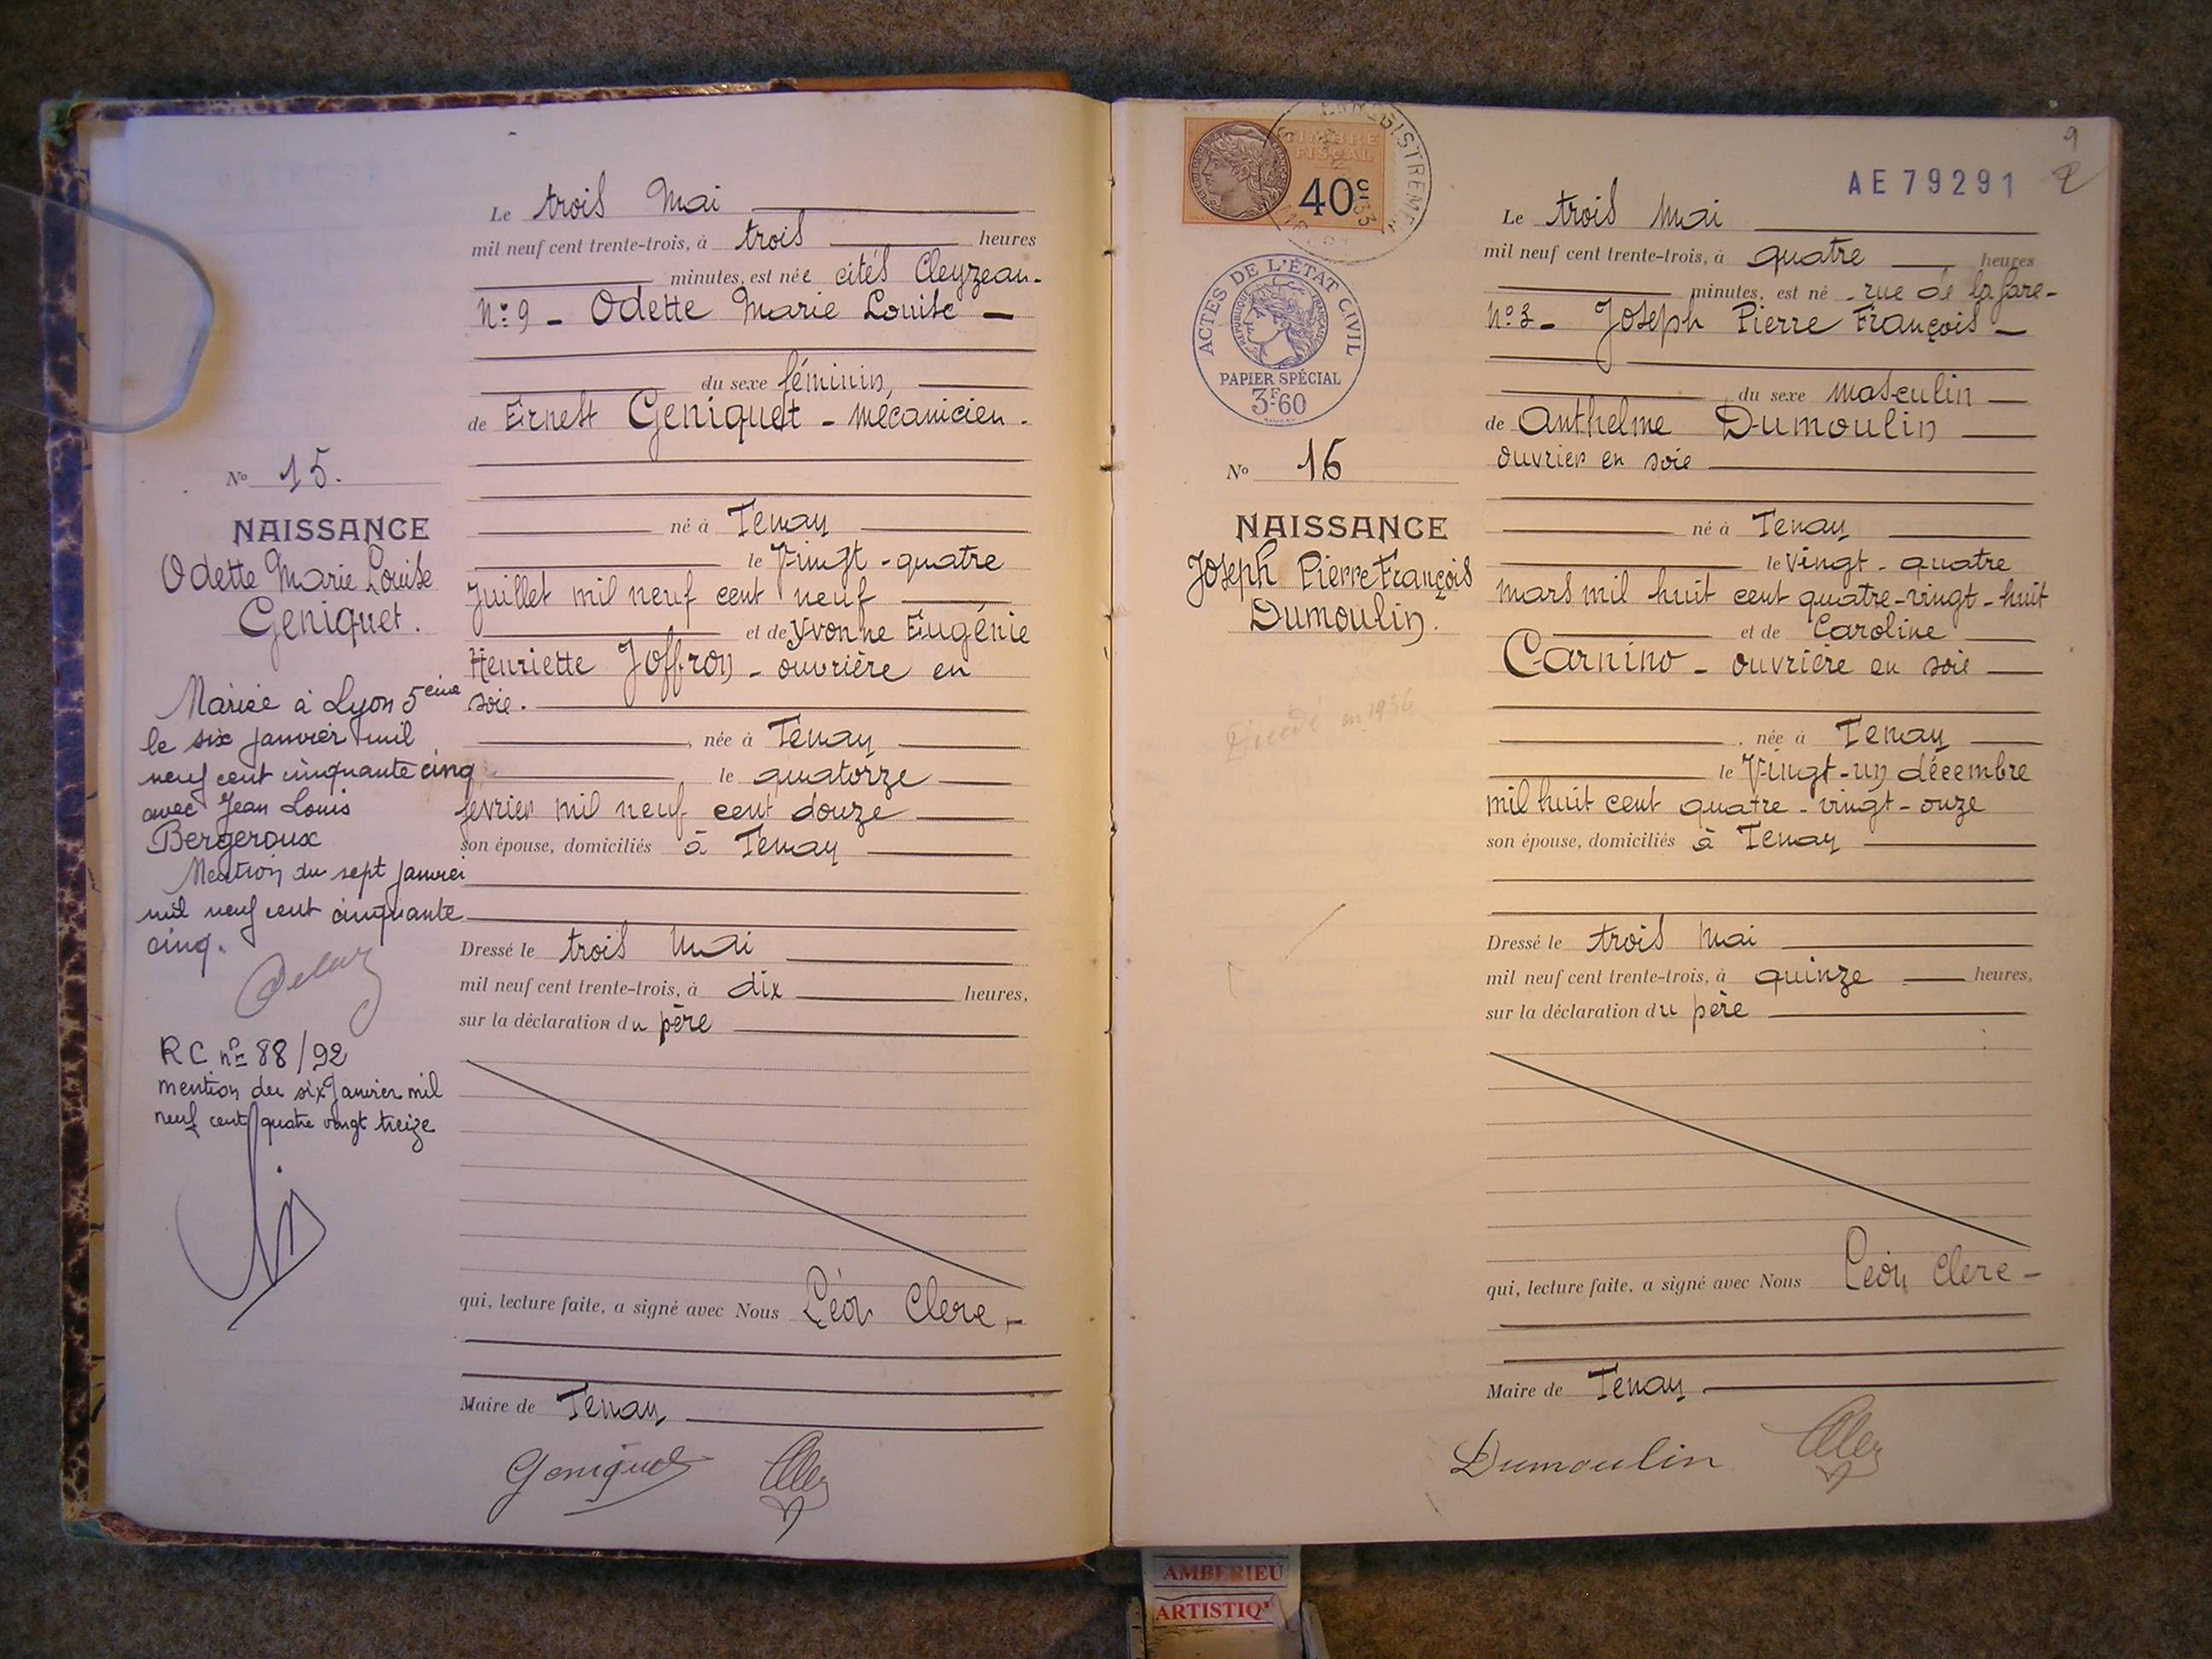 Le trois Mai
mil neuf cent trente-trois, à trois heures
minutes, est née cités Cleyzeau-
N° 9 - Odette Marie Louise -
du sexe féminin,
de Ernest Geniquet - mécanicien.
né à Tenay
le Vingt-quatre
Juillet mil neuf cent neuf
et de Yvonne Eugénie
Henriette Joffron - ouvrière en
soie.
, née à Tenay
, le quatorze
février mil neuf cent douze
son épouse, domiciliés à Tenay
Dressé le trois Mai
mil neuf cent trente-trois, à dix heures,
sur la déclaration du père
qui, lecture faite, a signé avec Nous Léon Clerc -
Maire de Tenay
Geniquet
N° 15.
NAISSANCE
Odette Marie Louise
Geniquet.
Mariée à Lyon 5eme
le six janvier mil
neuf cent cinquante cinq
avec Jean Louis
Bergeroux
Mention du sept janvier
mil neuf cent cinquante
cinq.
RC n° 88/92
mention du six Janvier mil
neuf cent quatre vingt treize
9
AE 79291 2
TIMBRE
FISCAL
40c
ENREGISTREMENT
ACTES DE L'ÉTAT CIVIL
RÉPUBLIQUE FRANÇAISE
PAPIER SPÉCIAL
3F60
N° 16
NAISSANCE
Joseph Pierre François
Dumoulin.
Décédé en 1936
Le trois Mai
mil neuf cent trente-trois, à quatre heures
minutes, est né - rue de la gare -
N° 3 - Joseph Pierre François -
du sexe masculin
de Anthelme Dumoulin
ouvrier en soie
né à Tenay
le Vingt-quatre
mars mil huit cent quatre-vingt-huit
et de Caroline
Carnino - ouvrière en soie
, née à Tenay
le Vingt-un décembre
mil huit cent quatre-vingt-onze
son épouse, domiciliés à Tenay
Dressé le trois Mai
mil neuf cent trente-trois, à quinze heures,
sur la déclaration du père
qui, lecture faite, a signé avec Nous Léon Clerc -
Maire de Tenay
Dumoulin
AMBERIEU
ARTISTIQ